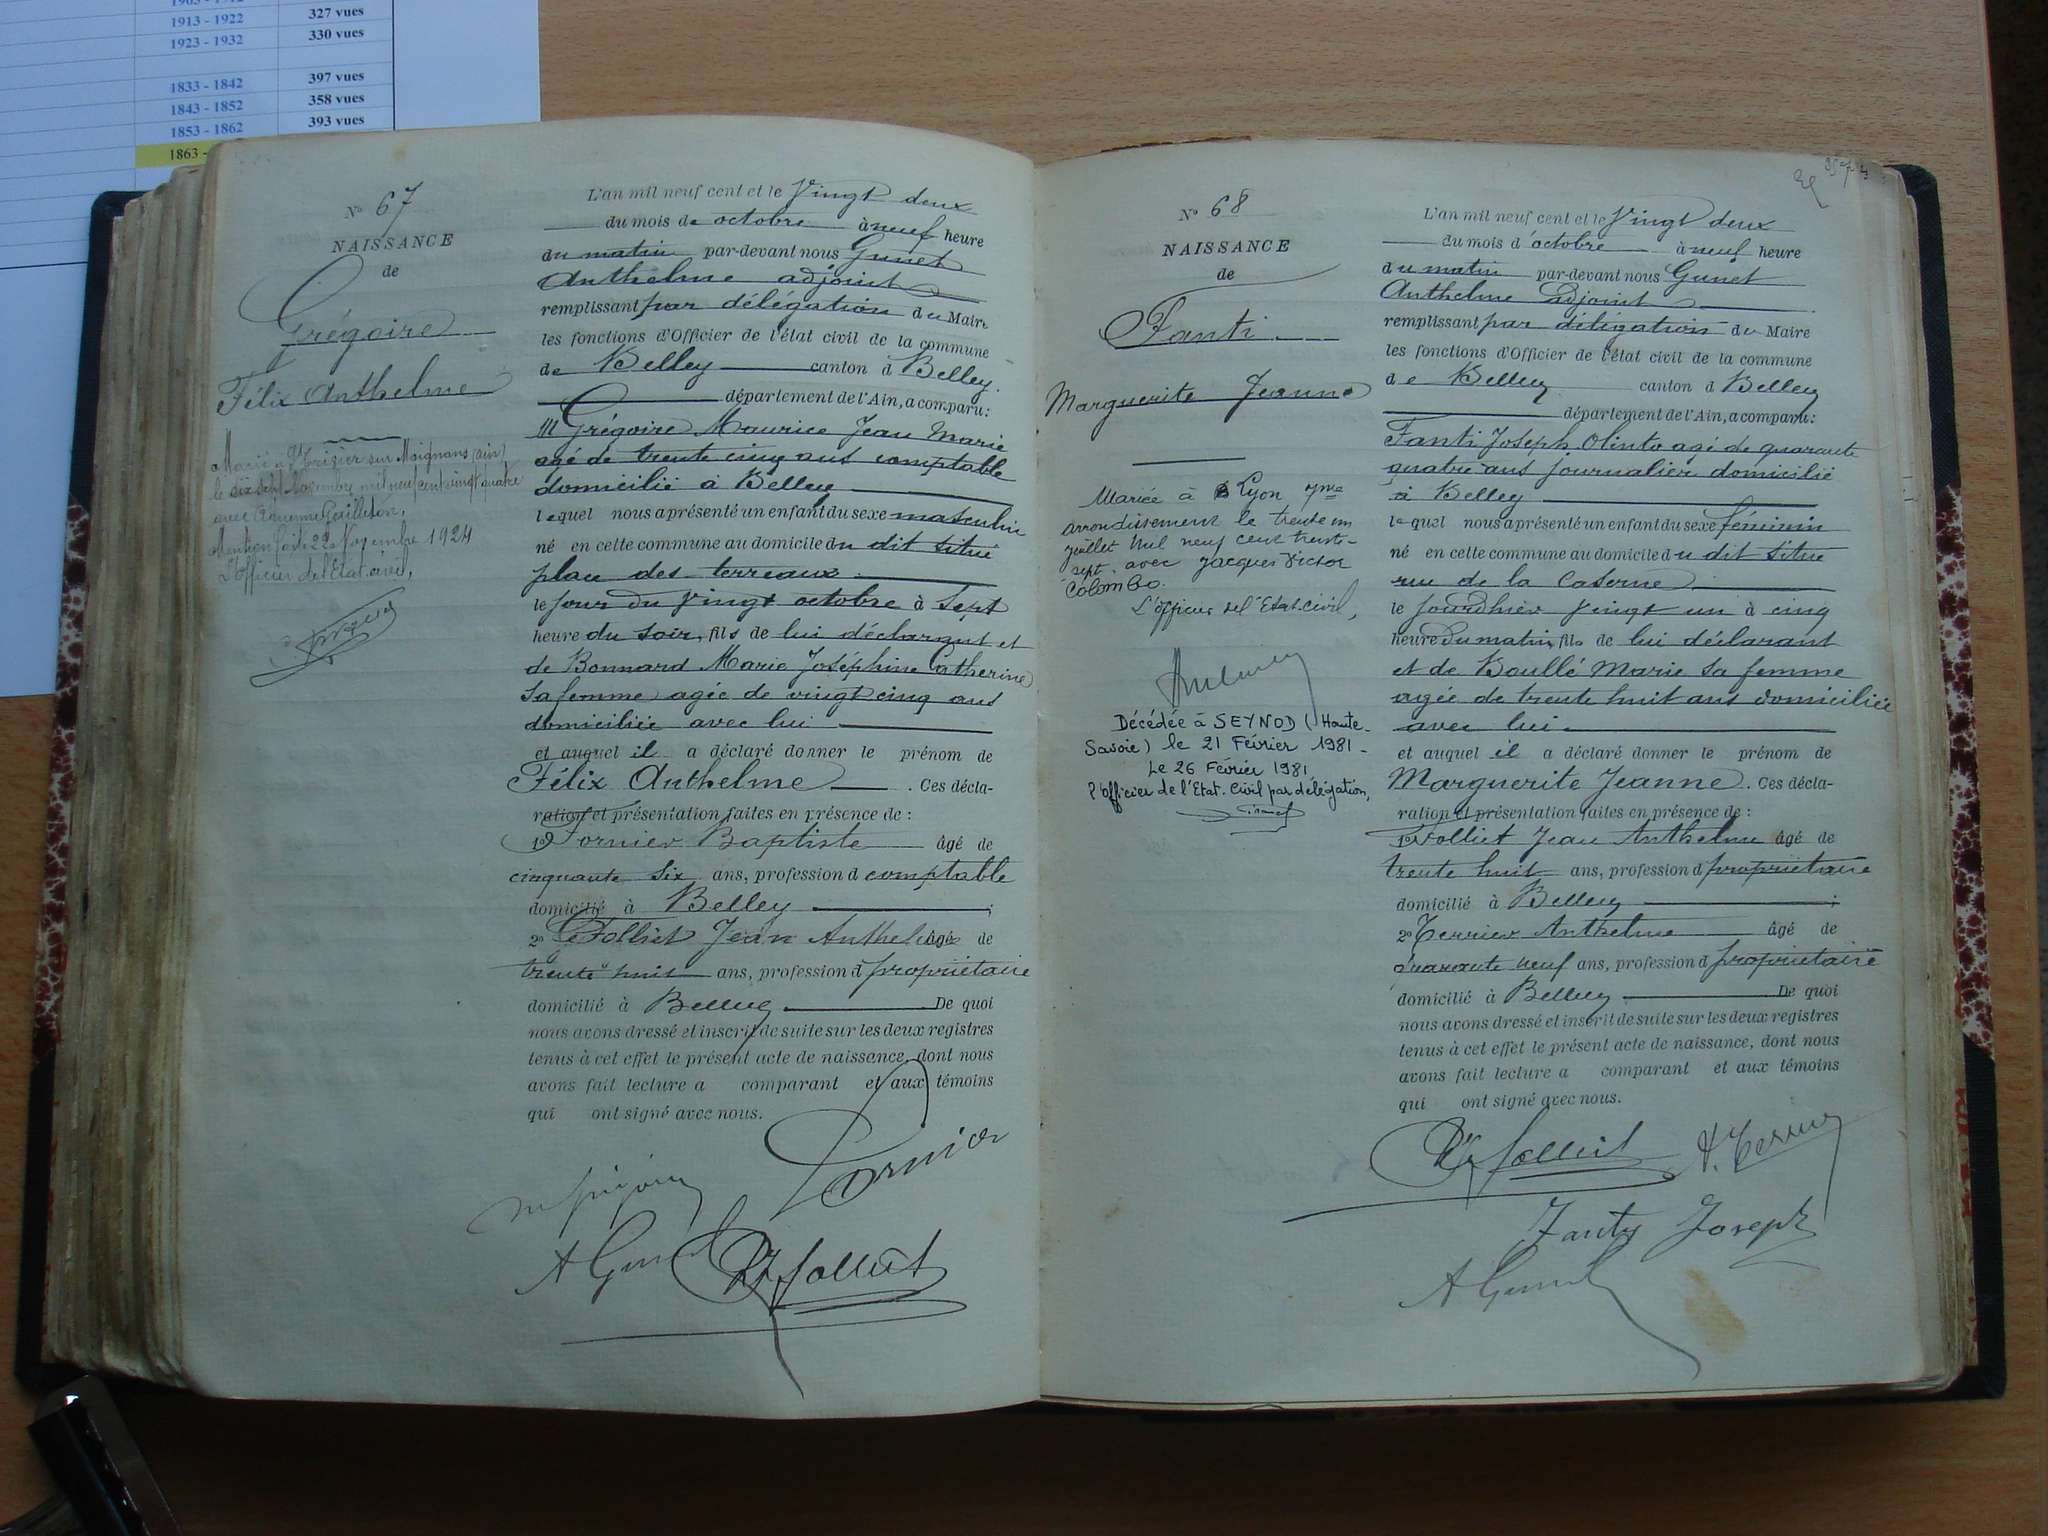 1913 - 1922 327 vues
1923 - 1932 330 vues
1833 - 1842 397 vues
1843 - 1852 358 vues
1853 - 1862 393 vues
1863 -
No 67
NAISSANCE
de
Grégoire
Félix Anthelme
le dix sept Novembre mil neuf cent vingt quatre
Mention faite 22 Novembre 1924
L'officier de l'Etat civil,
L'an mil neuf cent et le Vingt deux
du mois de octobre à neuf heure
du matin par-devant nous Gunet
Anthelme adjoint
remplissant par délégation du Maire
les fonctions d'Officier de l'état civil de la commune
de Belley canton d Belley.
département de l'Ain, a comparu:
M Grégoire Maurice Jean Marie
agé de trente cinq ans comptable
domicilié à Belley
lequel nous a présenté un enfant du sexe masculin
né en cette commune au domicile du dit situé
place des terreaux
le jour du vingt octobre à sept
heure du soir, fils de lui déclarant et
de Bonnard Marie Joséphine Catherine
sa femme agée de vingt cinq ans
domiciliée avec lui
et auquel il a déclaré donner le prénom de
Félix Anthelme . Ces décla-
ration et présentation faites en présence de :
1o Fornier Baptiste âgé de
cinquante six ans, profession d comptable
domicilié à Belley ;
2o Folliet Jean Anthelme âgé de
trente huit ans, profession d propriétaire
domicilié à Belley De quoi
nous avons dressé et inscrit de suite sur les deux registres
tenus à cet effet le présent acte de naissance, dont nous
avons fait lecture a comparant et aux témoins
qui ont signé avec nous.
Fornier
A Gunet Folliet
No 68
NAISSANCE
de
Fanti
Marguerite Jeanne
Mariée à Lyon 7me
arrondissement le trente un
juillet mil neuf cent trente-
sept. avec Jacques Victor
Colombo.
L'officier de l'Etat civil,
Décédée à SEYNOD (Haute-
Savoie) le 21 Février 1981 -
Le 26 Février 1981
l'officier de l'Etat. Civil par délégation,
L'an mil neuf cent et le Vingt deux
du mois d'octobre à neuf heure
du matin par-devant nous Gunet
Anthelme adjoint
remplissant par délégation du Maire
les fonctions d'Officier de l'état civil de la commune
de Belley canton d Belley
département de l'Ain, a comparu:
Fanti Joseph Olinto agé de quarante
quatre ans journalier domicilié
à Belley
lequel nous a présenté un enfant du sexe féminin
né en cette commune au domicile du dit situé
rue de la Caserne
le jour d'hier vingt un à cinq
heure du matin, fils de lui déclarant
et de Boullé Marie sa femme
agée de trente huit ans domiciliée
avec lui.
et auquel il a déclaré donner le prénom de
Marguerite Jeanne. Ces décla-
ration et présentation faites en présence de :
1o Folliet Jean Anthelme âgé de
trente huit ans, profession d propriétaire
domicilié à Belley ;
2o Terrier Anthelme âgé de
quarante neuf ans, profession d propriétaire
domicilié à Belley De quoi
nous avons dressé et inscrit de suite sur les deux registres
tenus à cet effet le présent acte de naissance, dont nous
avons fait lecture a comparant et aux témoins
qui ont signé avec nous.
Folliet A. Terrier
Fanty Joseph
A Gunet